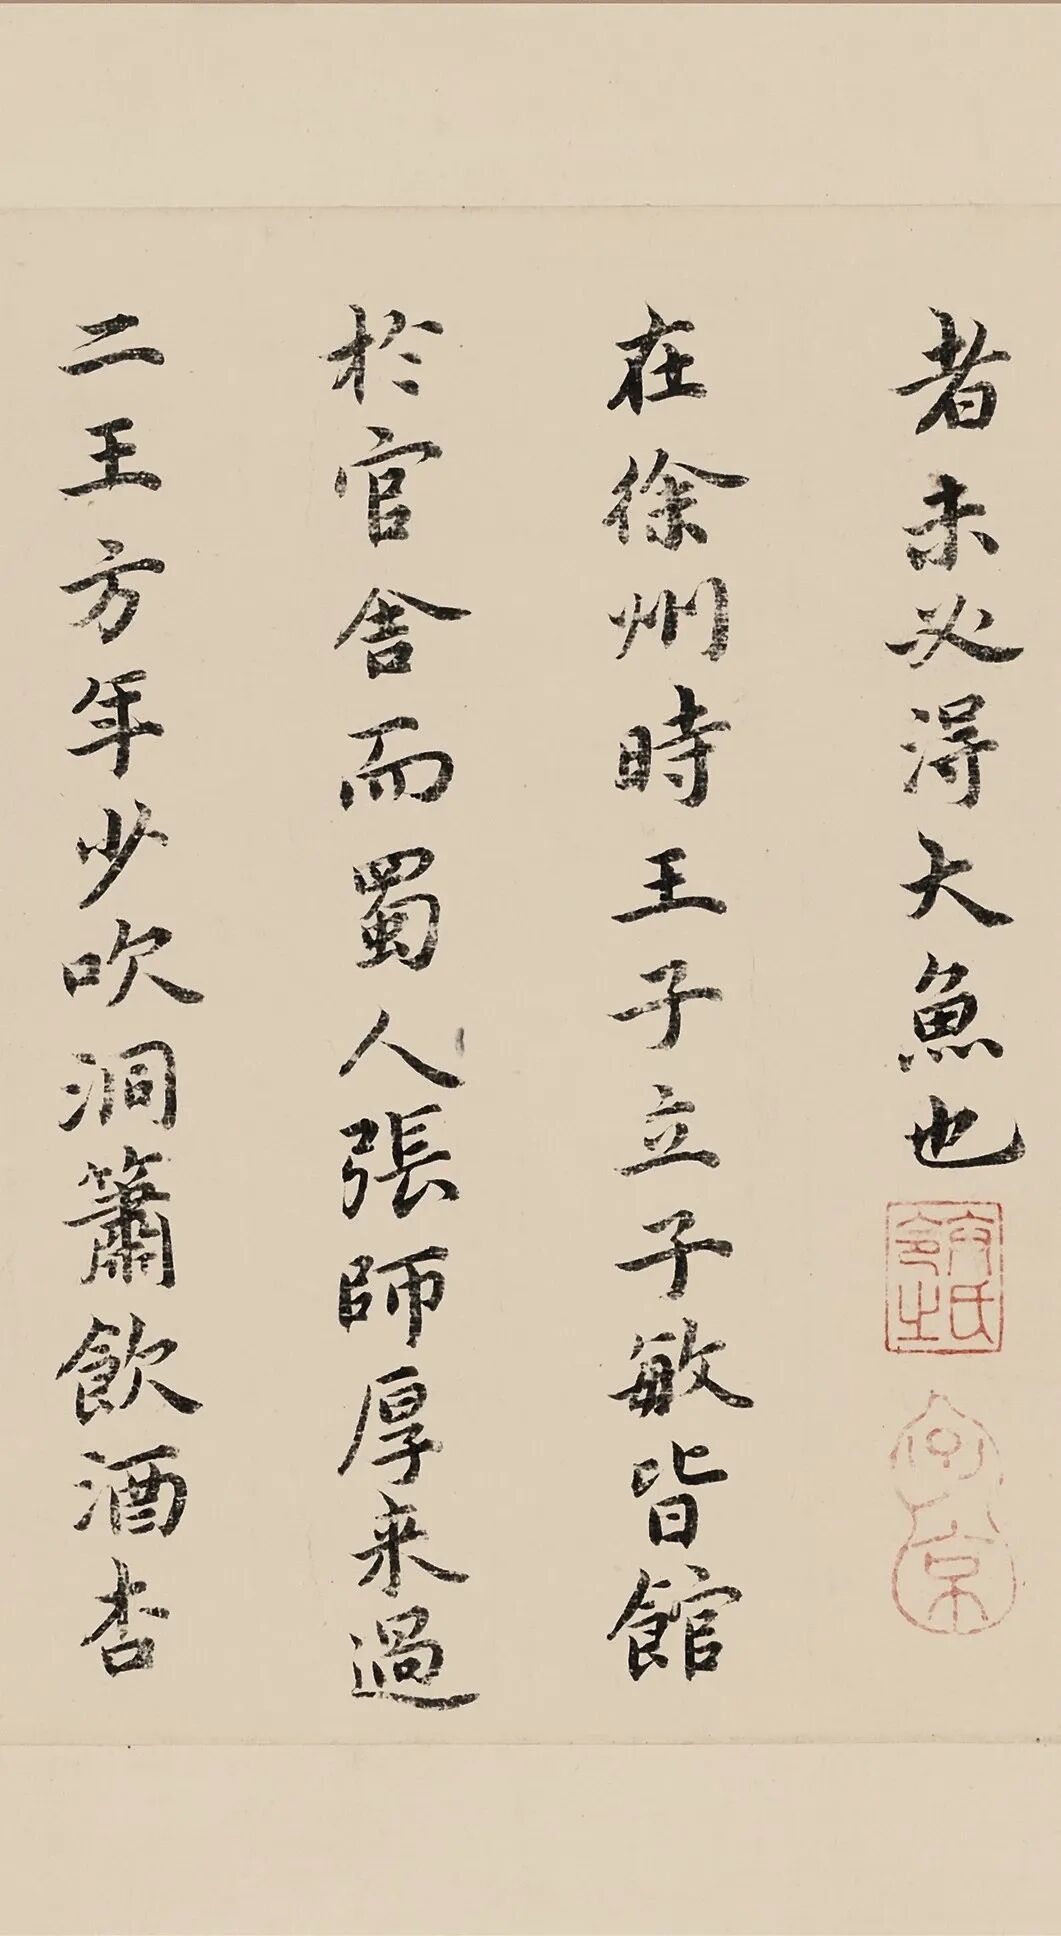 者未必得大魚也
在徐州時王子立子敏皆館
於官舍而蜀人張師厚来過
二王方年少吹洞簫飲酒杏